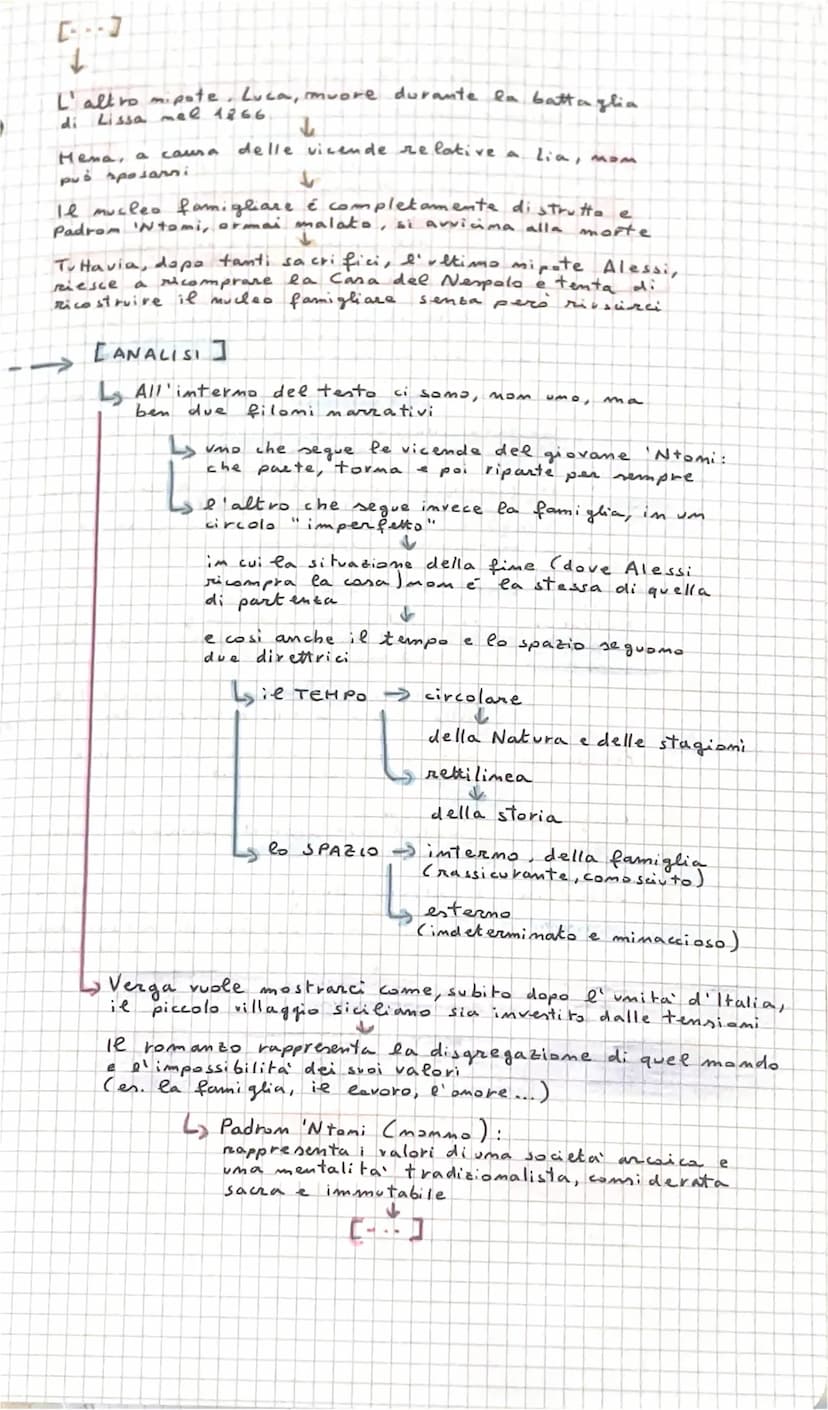 [...]
L'altro nipote, Luca, muore durante la battaglia
di Lissa nel 1866
Mena, a causa delle vicende relative a Lia, non
può sposarsi
Il nucleo famigliare è completamente distrutto e
Padron 'Ntoni, ormai malato, si avvicina alla morte
Tuttavia, dopo tanti sacrifici, l'ultimo nipote Alessi,
riesce a ricomprare la Casa del Nespolo e tenta di
ricostruire il nucleo famigliare senza però riuscirci
[ANALISI]
All'interno del testo ci sono, non uno, ma
ben due filoni narrativi
uno che segue le vicende del giovane 'Ntoni:
che parte, torna e poi riparte per sempre
l'altro che segue invece la famiglia, in un
circolo "imperfetto"
in cui la situazione della fine (dove Alessi
ricompra la casa) non è la stessa di quella
di partenza
e così anche il tempo e lo spazio seguono
due direttrici
il TEMPO → circolare
della Natura e delle stagioni
rettilinea
della storia
lo SPAZIO → interno, della famiglia
(rassicurante, conosciuto)
esterno
(indeterminato e minaccioso)
Verga vuole mostrarci come, subito dopo l'unità d'Italia,
il piccolo villaggio siciliano sia investito dalle tensioni
Il romanzo rappresenta la disgregazione di quel mondo
e l'impossibilità dei suoi valori
(es. la famiglia, il lavoro, l'onore...)
Padron 'Ntoni (nonno):
rappresenta i valori di una società arcaica e
una mentalità tradizionalista, considerata
sacra e immutabile
[...]